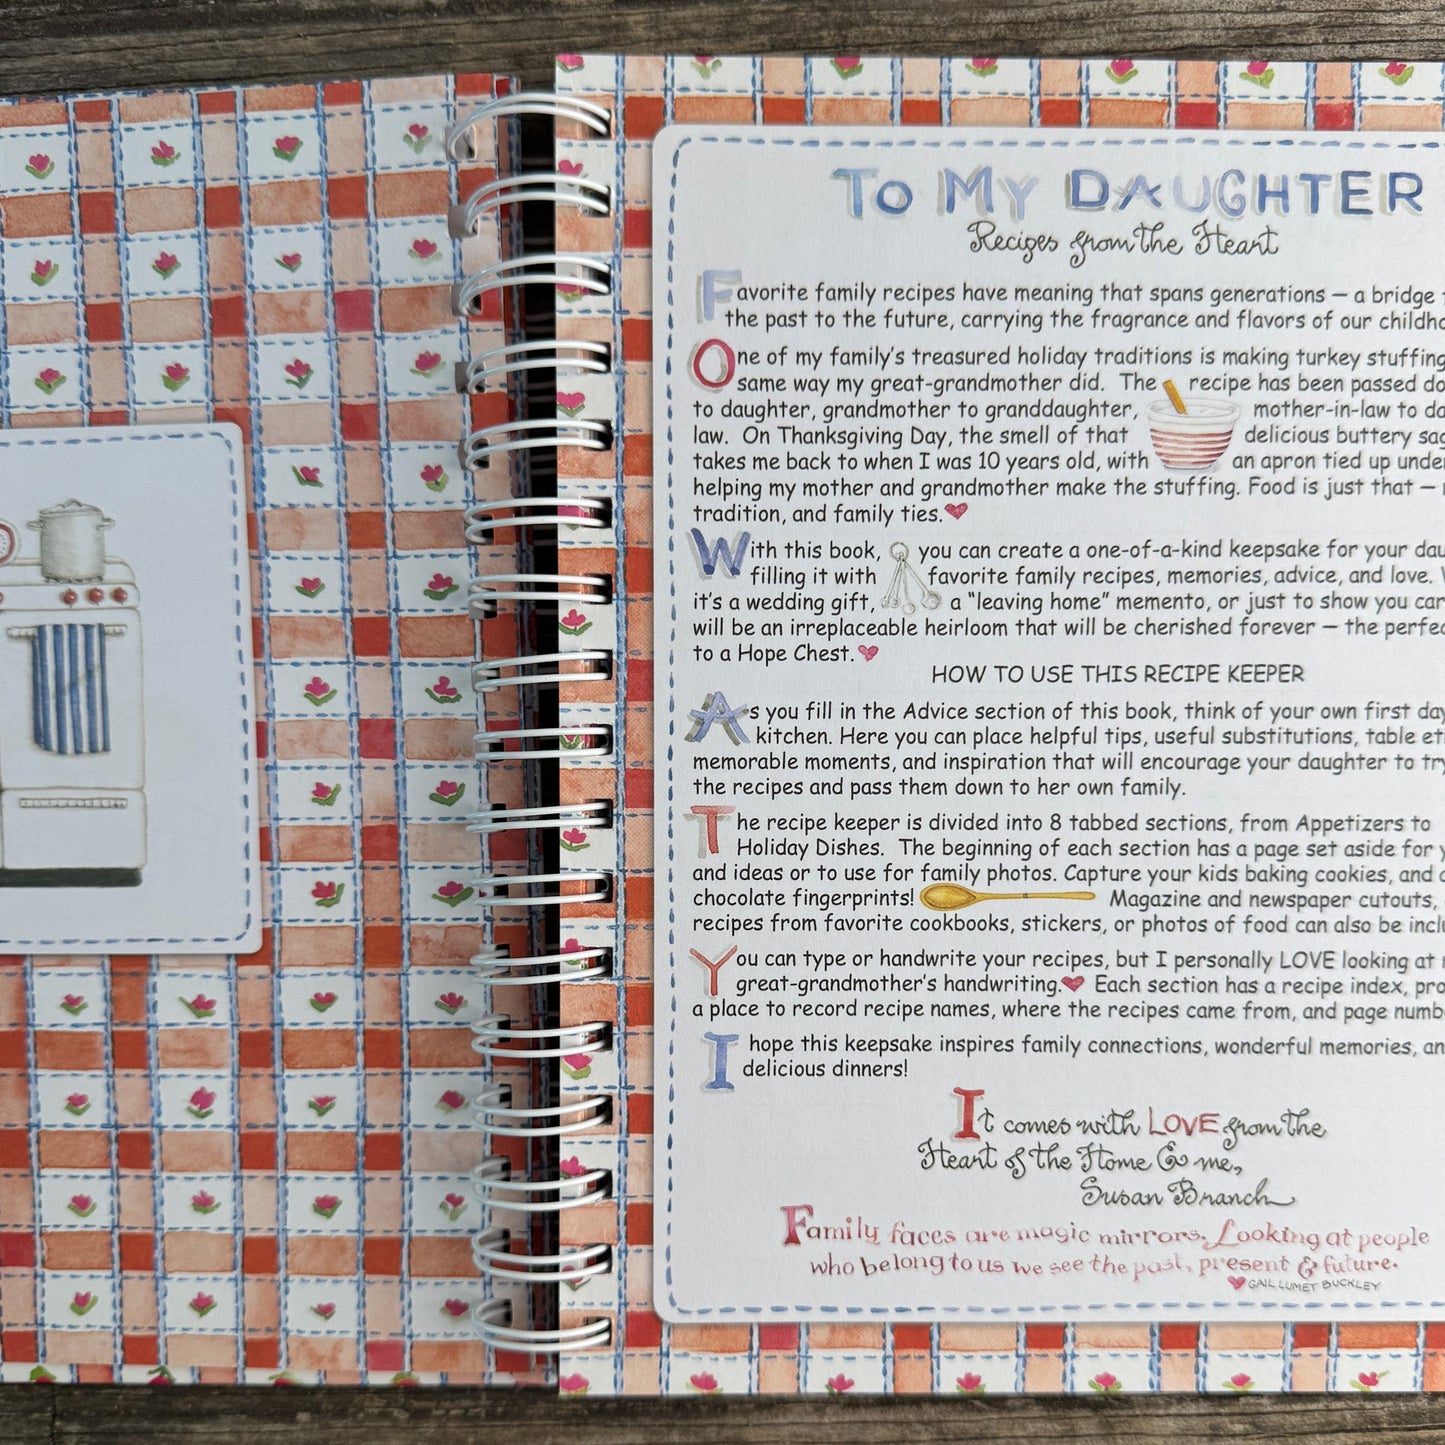 TO MY DAUGHTER
Recipes from the Heart
Favorite family recipes have meaning that spans generations — a bridge
the past to the future, carrying the fragrance and flavors of our
One of my family's treasured holiday traditions is making turkey stuffing
same way my great-grandmother did. The recipe has been passed
to daughter, grandmother to granddaughter, mother-in-law to
law. On Thanksgiving Day, the smell of that delicious buttery
takes me back to when I was 10 years old, with an apron tied up
helping my mother and grandmother make the stuffing. Food is just that —
tradition, and family ties.
With this book, you can create a one-of-a-kind keepsake for your
filling it with favorite family recipes, memories, advice, and love.
it's a wedding gift, a "leaving home" memento, or just to show you
will be an irreplaceable heirloom that will be cherished forever — the
to a Hope Chest.
HOW TO USE THIS RECIPE KEEPER
As you fill in the Advice section of this book, think of your own first
kitchen. Here you can place helpful tips, useful substitutions, table
memorable moments, and inspiration that will encourage your daughter to try
the recipes and pass them down to her own family.
The recipe keeper is divided into 8 tabbed sections, from Appetizers to
Holiday Dishes. The beginning of each section has a page set aside for
and ideas or to use for family photos. Capture your kids baking cookies, and
chocolate fingerprints! Magazine and newspaper cutouts,
recipes from favorite cookbooks, stickers, or photos of food can also be
You can type or handwrite your recipes, but I personally LOVE looking at
great-grandmother's handwriting. Each section has a recipe index,
a place to record recipe names, where the recipes came from, and page
I hope this keepsake inspires family connections, wonderful memories,
delicious dinners!
It comes with LOVE from the
Heart of the Home & me,
Susan Branch
Family faces are magic mirrors. Looking at people
who belong to us we see the past, present & future.
GAIL LUMET BUCKLEY